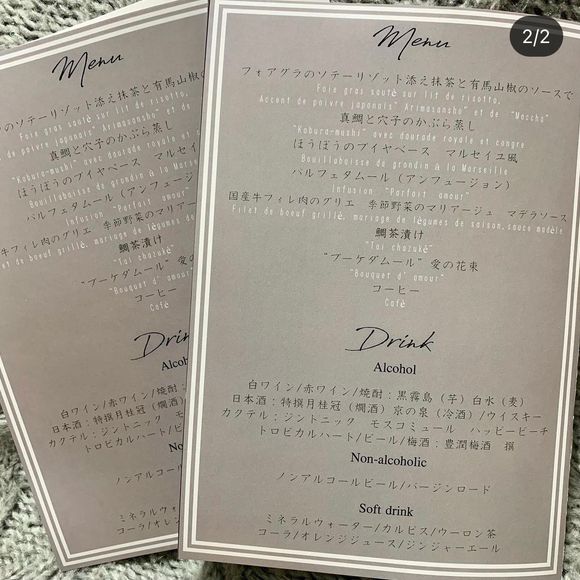 2/2
Menu
フォアグラのソテーリゾット添え抹茶と有馬山椒のソースで
Foie gras sauté sur lit de risotto,
Accent de poivre japonais" Arimasansho" et de "Maccha"
真鯛と穴子のかぶら蒸し
"Kobura-mushi" avec daurade royale et congre
ほうぼうのブイヤベース マルセイユ風
Bouillabaisse du grondin à la Marseille
パルフェタムール（アンフュージョン）
Infusion "Parfait amour"
国産牛フィレ肉のグリエ 季節野菜のマリアージュ マデラソース
Filet de boeuf grillé, mariage de légumes de saison,sauce madère
鯛茶漬け
"Tai chazuké"
"ブーケダムール" 愛の花束
"Bouquet d' amour"
コーヒー
Café
Drink
Alcohol
白ワイン/赤ワイン/焼酎：黒霧島（芋）白水（麦）
日本酒：特撰月桂冠（燗酒）京の泉（冷酒）/ウイスキー
カクテル：ジントニック モスコミュール ハッピーピーチ
トロピカルハート/ビール/梅酒：豊潤梅酒 撰
Non-alcoholic
ノンアルコールビール/バージンロード
Soft drink
ミネラルウォーター/カルピス/ウーロン茶
コーラ/オレンジジュース/ジンジャーエール
Menu
のソテーリゾット添え抹茶と有馬山椒の
Foie gras sauté sur lit de risotto,
de poivre japonais" Arimasansho" et de
真鯛と穴子のかぶら蒸し
"Kobura-mushi" avec daurade royale et congre
ほうぼうのブイヤベース マルセイユ
Bouillabaisse du grondin à la Marseille
パルフェタムール（アンフュージョン）
Infusion "Parfait amour"
牛フィレ肉のグリエ 季節野菜のマリアー
de boeuf grillé, mariage de légumes de
鯛茶漬け
"Tai chazuké"
"ブーケダムール" 愛の
"Bouquet d' amour"
コーヒー
Café
Drink
Alcoh
白ワイン/赤ワイン/焼酎：
日本酒：特撰月桂冠（燗酒）
カクテル：ジントニック モ
トロピカルハート/ビ
No
ノンアルコールビール
ミネラルウォー
コーラ/オレンジ